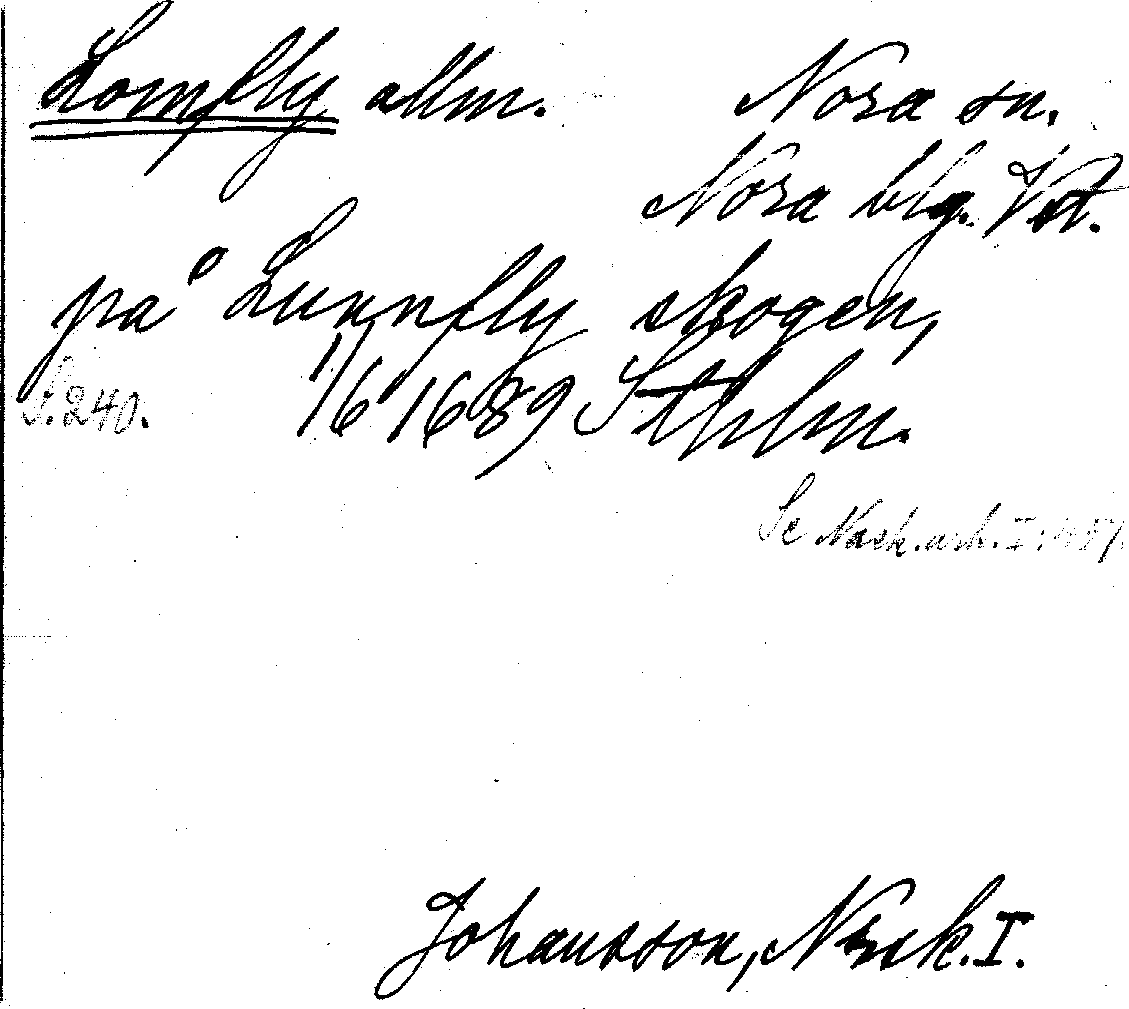 Lomfly allm. Nora sn.
Nora blg. Vst.
på Lunnfly skogen,
S. 240. 1/6 1689 Sthlm.
Se Nack. ark. I:
Johansson, Norsk. I.